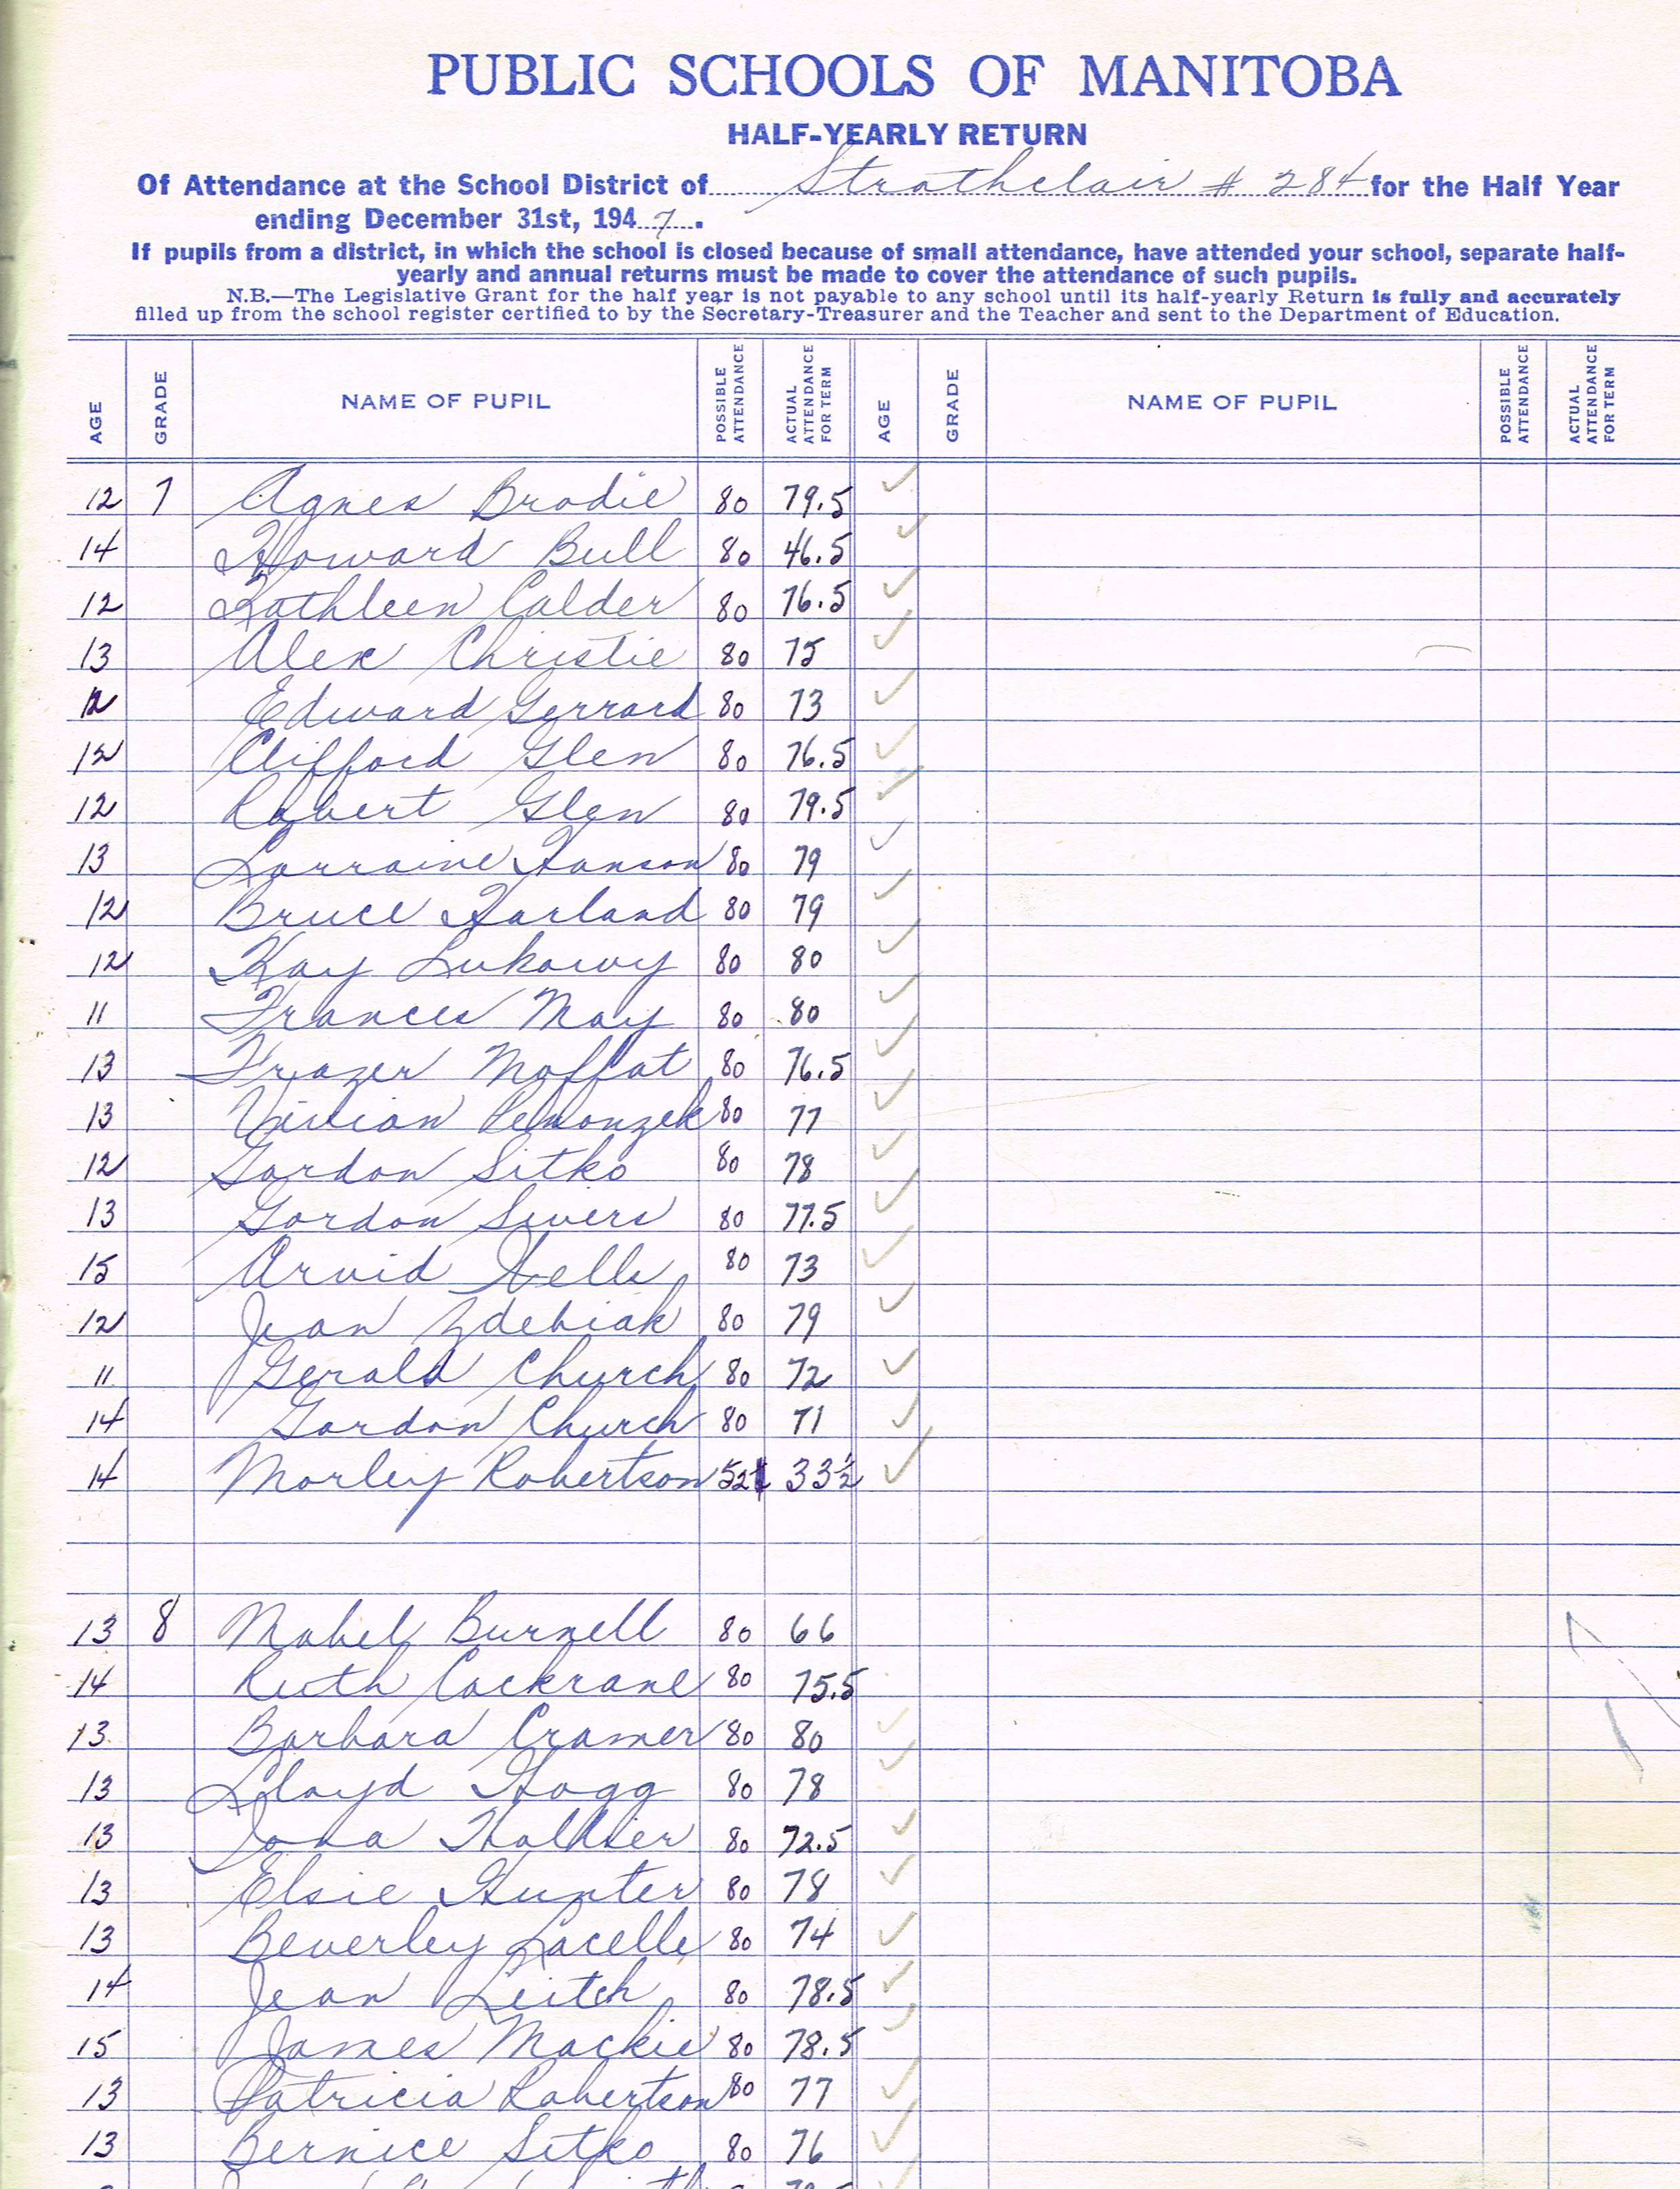 PUBLIC SCHOOLS OF MANITOBA
HALF-YEARLY RETURN
Of Attendance at the School District of Strathclair # 284 for the Half Year
ending December 31st, 1947.
If pupils from a district, in which the school is closed because of small attendance, have attended your school, separate half-
yearly and annual returns must be made to cover the attendance of such pupils.
N.B.—The Legislative Grant for the half year is not payable to any school until its half-yearly Return is fully and accurately
filled up from the school register certified to by the Secretary-Treasurer and the Teacher and sent to the Department of Education.
AGE GRADE NAME OF PUPIL POSSIBLE ATTENDANCE ACTUAL ATTENDANCE FOR TERM AGE GRADE NAME OF PUPIL POSSIBLE ATTENDANCE ACTUAL ATTENDANCE FOR TERM
12 7 Agnes Brodie 80 79.5
14 Howard Bull 80 46.5
12 Kathleen Calder 80 76.5
13 Alex Christie 80 75
12 Edward Gerrard 80 73
12 Clifford Glen 80 76.5
12 Robert Glen 80 79.5
13 Lorraine Hanson 80 79
12 Bruce Harland 80 79
12 Kay Lukowy 80 80
11 Frances May 80 80
13 Frazer Moffat 80 76.5
13 Vivian 80 77
12 Gordon Sitko 80 78
13 Gordon Sivers 80 77.5
15 Arvid 80 73
12 Jean Zdebiak 80 79
11 Gerald Church 80 72
14 Gordon Church 80 71
14 Morley Robertson 52 33½
13 8 Mabel Burnell 80 66
14 Ruth Cockrane 80 75.5
13 Barbara Cramer 80 80
13 Lloyd Hogg 80 78
13 Iona 80 72.5
13 Elsie Hunter 80 78
13 Beverley Lacelle 80 74
14 Jean Leitch 80 78.5
15 James Mackie 80 78.5
13 Patricia Robertson 80 77
13 Bernice Sitko 80 76